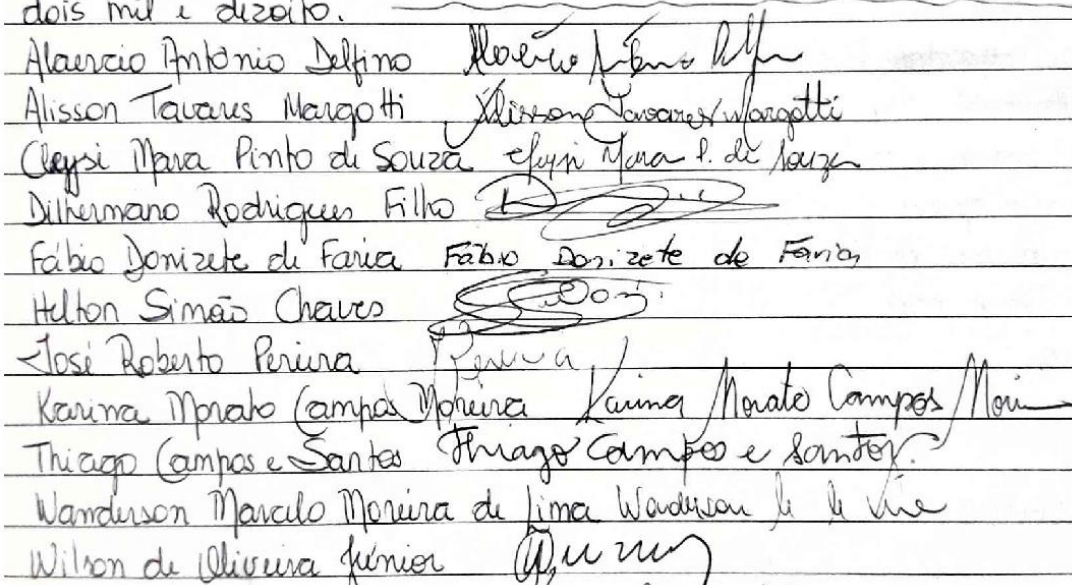 dois mil e dezoito.
Alaercio Antônio Delfino
Alisson Tavares Margotti Alisson Tavares Margotti
Cleysi Mara Pinto de Souza Cleysi Mara P. de Souza
Dilhermano Rodrigues Filho
Fábio Donizete de Faria Fábio Donizete de Faria
Helton Simão Chaves
José Roberto Pereira Pereira
Karina Morato Campos Moreira Karina Morato Campos
Thiago Campos e Santos Thiago Campos e Santos.
Wanderson Marcelo Moreira de Lima Wanderson
Wilson de Oliveira Júnior